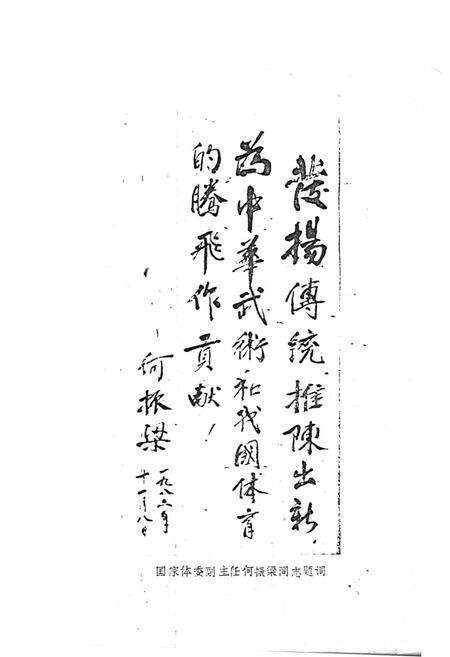 發揚傳統推陳出新，
為中華武術和我國体育
的騰飛作貢献！
何振梁
一九八六年
十一月八日
国家体委副主任何振梁同志题词